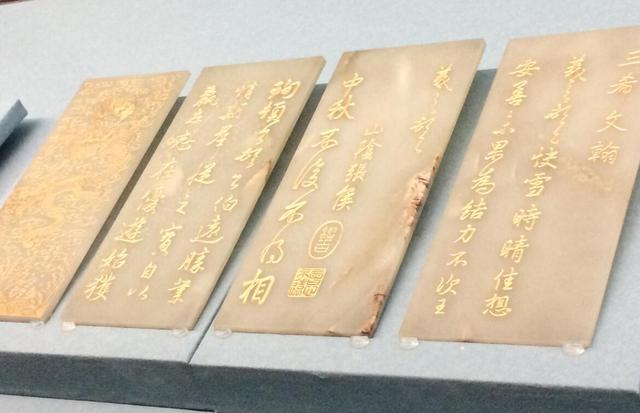 三希文翰
羲之頓首快雪時晴佳想
安善未果為結力不次王
羲之頓首
山陰張侯
中秋不復不得相
珣頓首頓首伯遠勝業
情期群從之寶自以
羸患志在優遊始獲